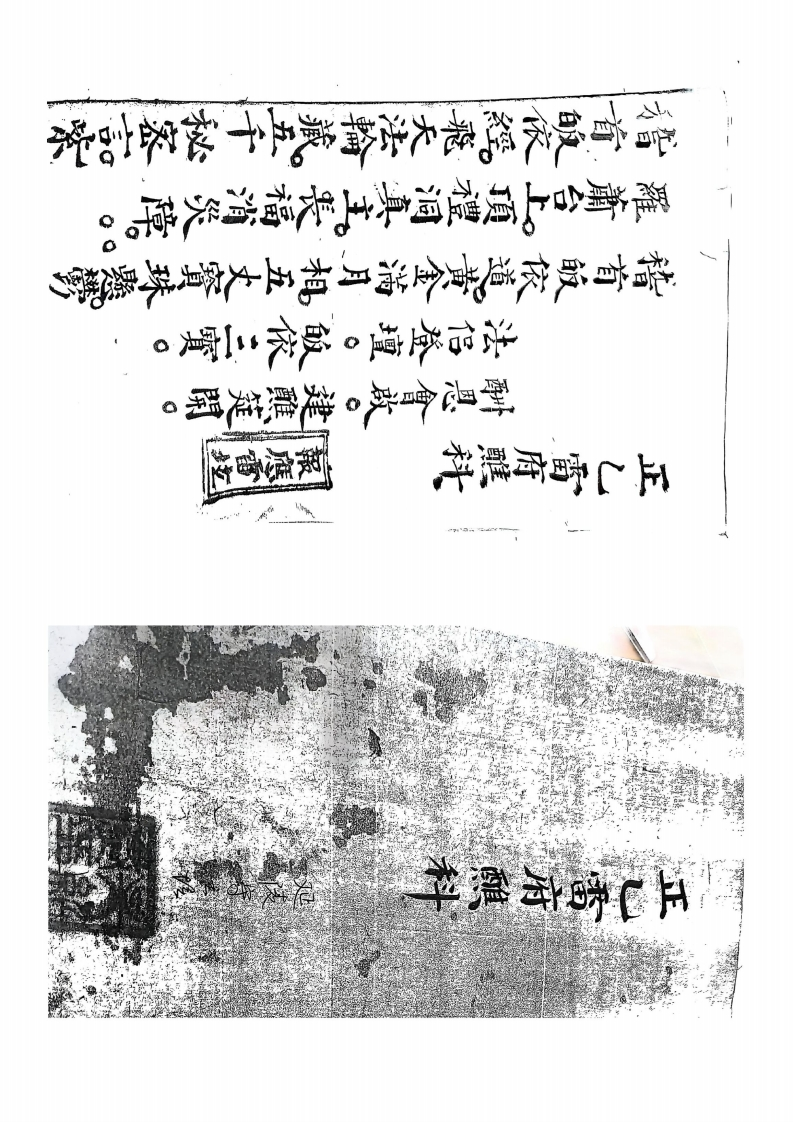 正乙雷府醮科
正乙雷府醮科
報應雷坛
酬恩會啟。建醮筵開。
法侶登壇。皈依三寶。
稽首皈依道。黃金滿月相五丈寶珠懸。鬱
羅蕭台上。頂禮洞真主。長福消災障。
稽首皈依經。飛天法輪藏。五千秘密言。蘂